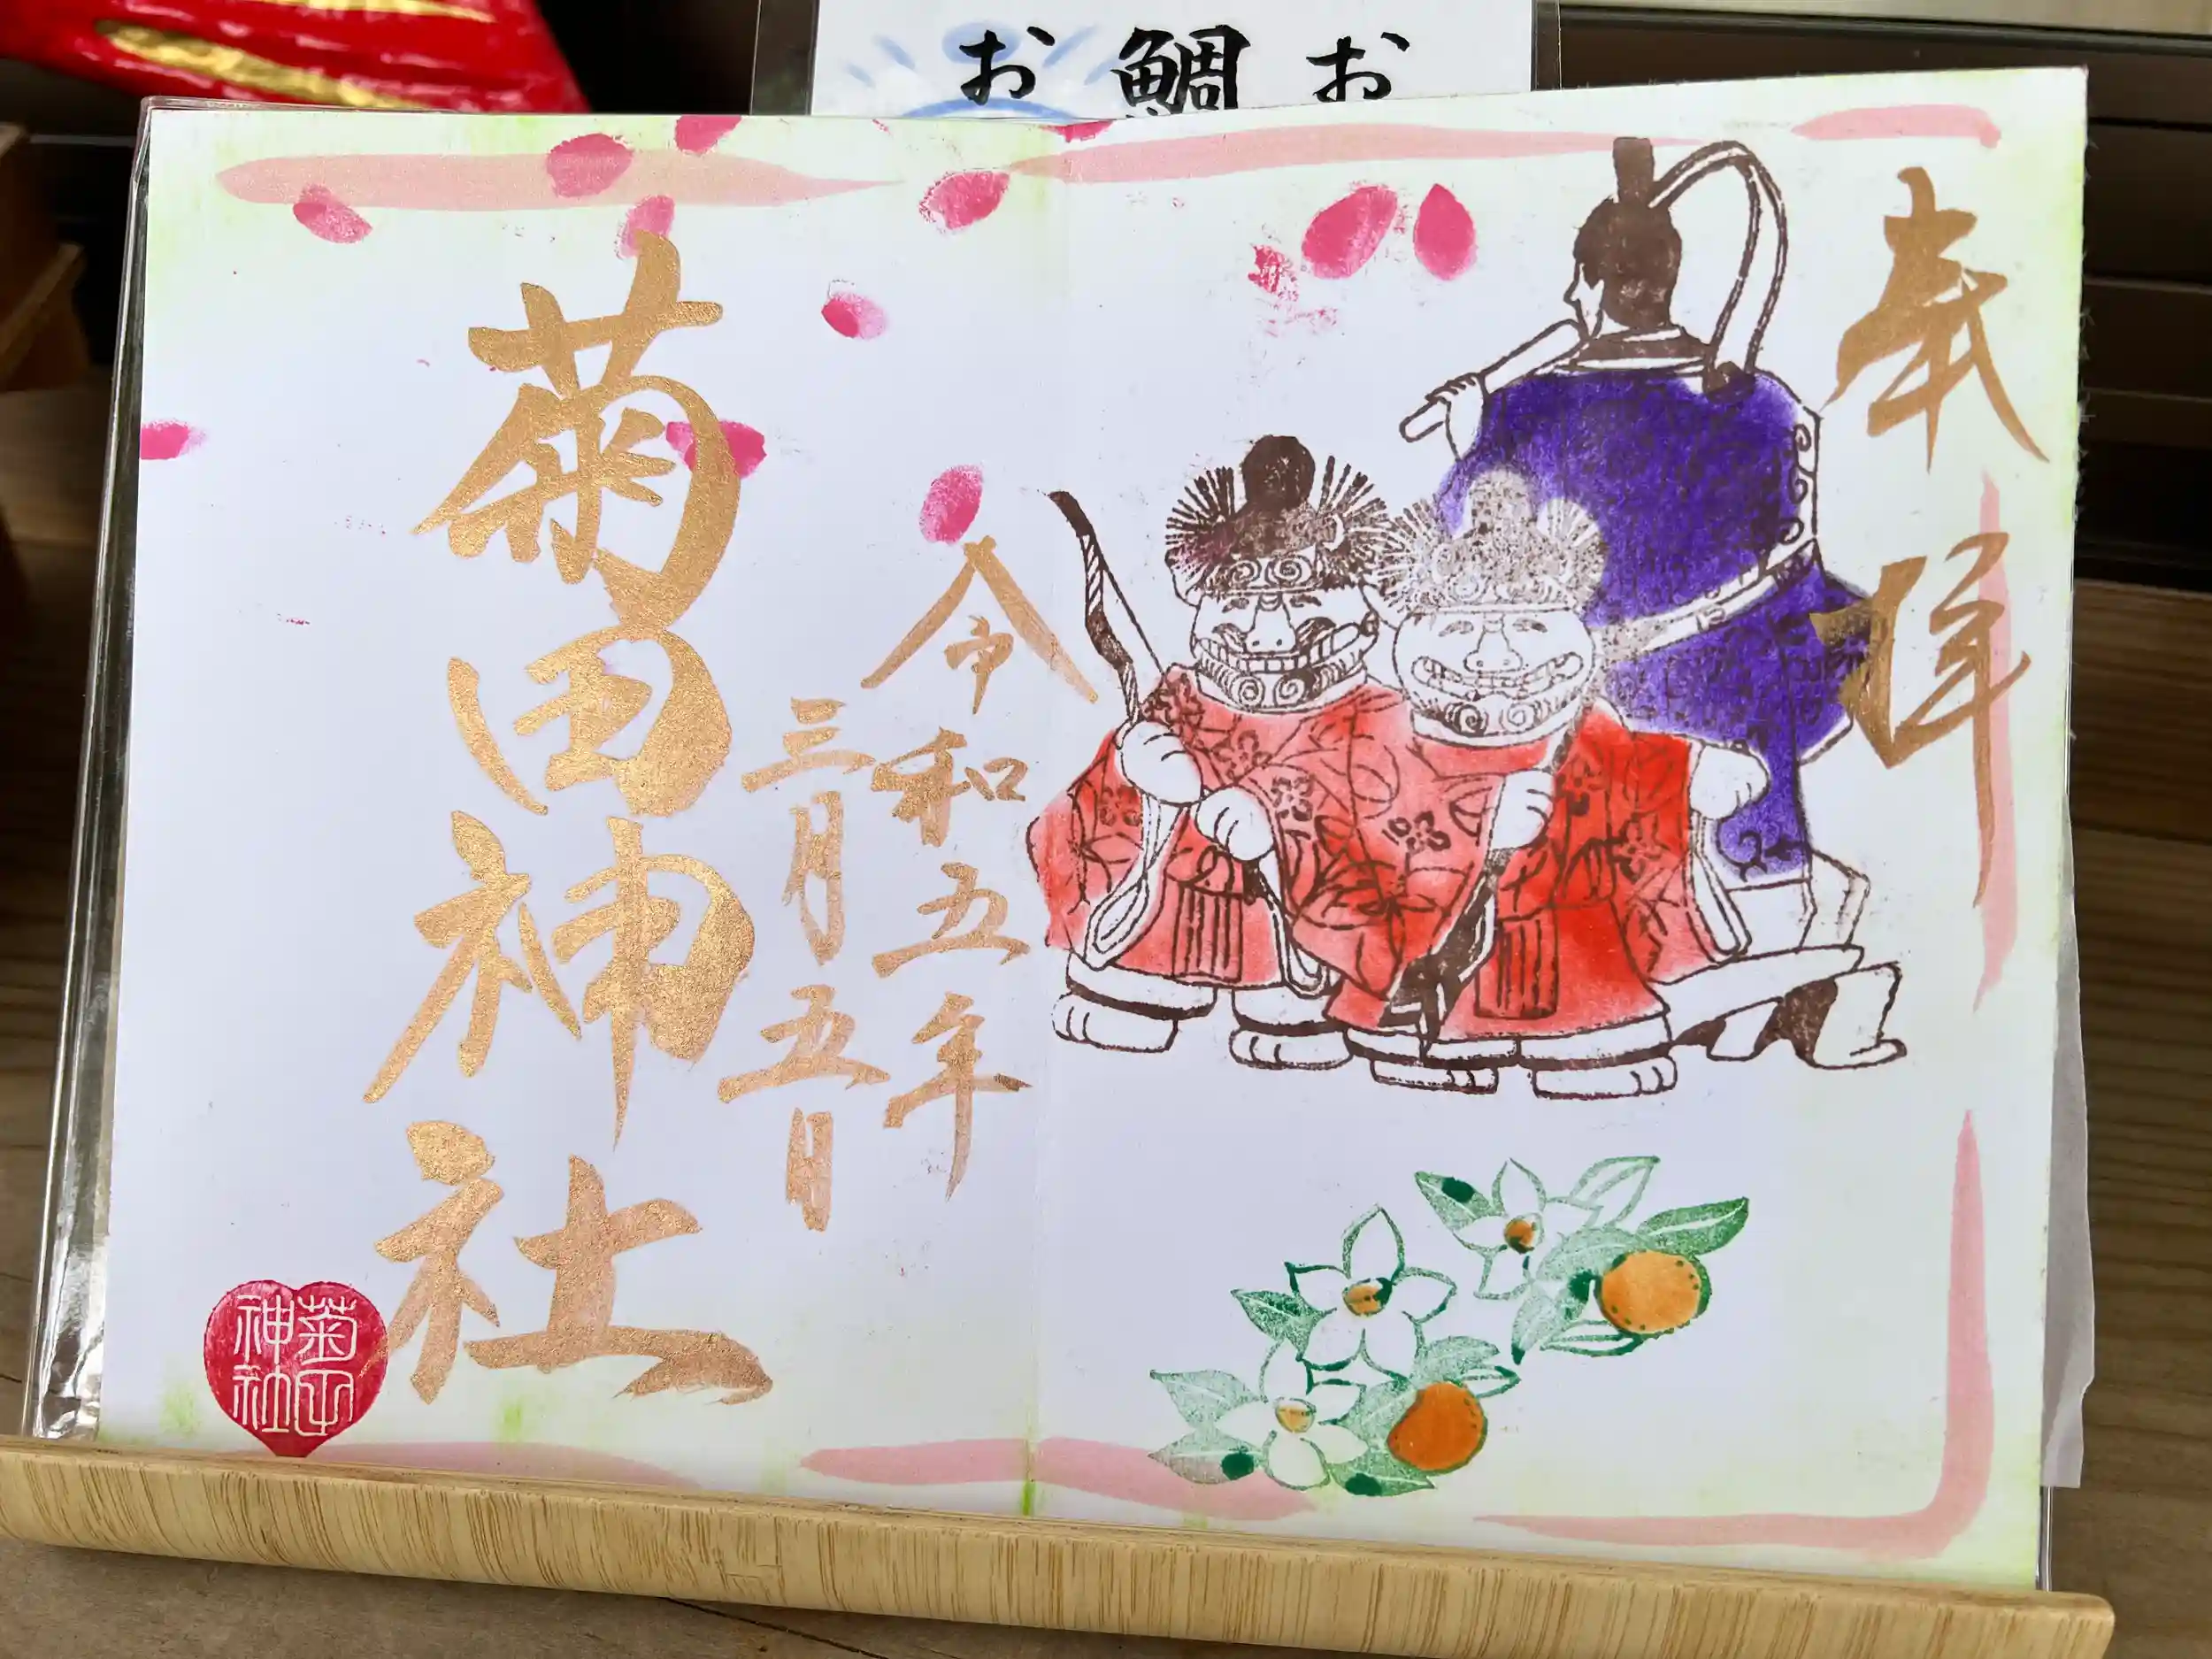 お鯛お
奉拝
令和五年
三月五日
菊田神社
菊田
神社